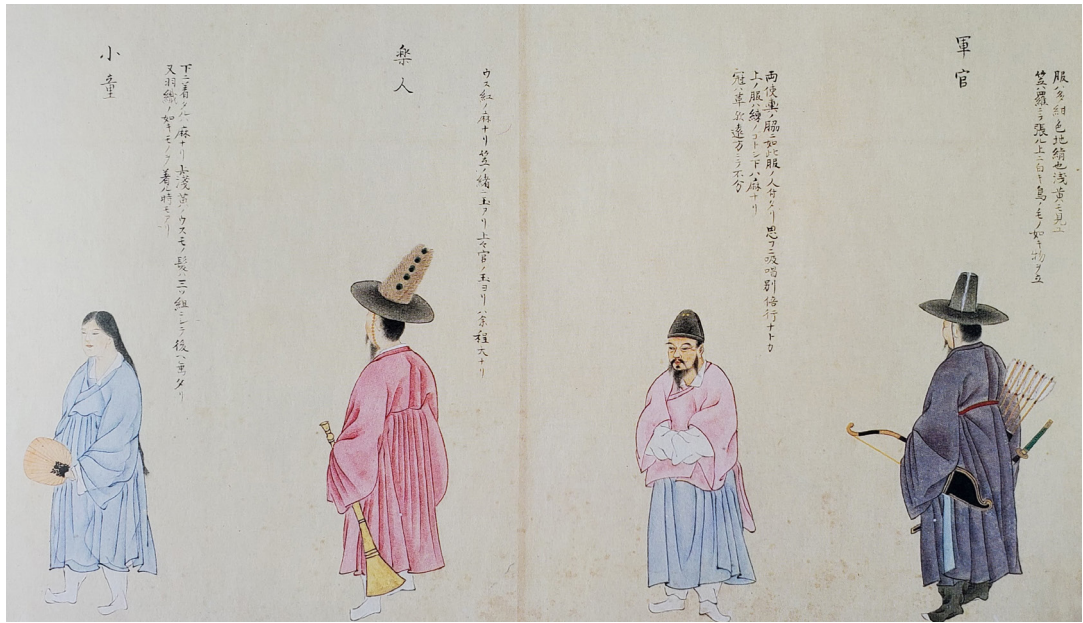 服ハ多紺色地絹也浅黄ニ見ユ
笠ハ羅ニテ張ル上ニ白キ鳥ノ毛ノ如キ物ヲ立
軍官
両使輿ノ脇ニ如此服ノ人付タリ思フニ吸唱別倍行ナトカ
上ノ服ハ練ノコトシ下ハ麻ナリ
冠ハ革欤遠方ニテ不分
ウス紅ノ麻ナリ笠ノ緒ニ玉アリ上々官ノ玉ヨリハ余程大ナリ
楽人
下ニ着タルハ麻ナリ 浅黄ノウスモノ髪ハ三ツ組ニシテ後ヘ垂タリ
又羽織ノ如キモノヲ着ル時モアリ
小童